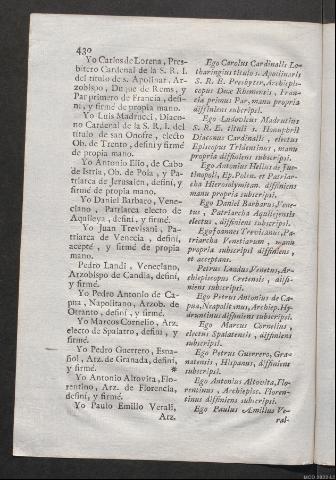 430
Yo Carlos de Lorena, Pres-
bítero Cardenal de la S. R. I.
del titulo de s. Apolinar, Ar-
zobispo, Duque de Rems, y
Par primero de Francia, defi-
ní, y firmé de propia mano.
Yo Luis Madrucci, Diaco-
no Cardenal de la S. R. I. del
titulo de san Onofre, electo
Ob. de Trento, definí y firmé
de propia mano.
Yo Antonio Elío, de Cabo
de Istria, Ob. de Pola, y Pa-
triarca de Jerusalen, definí, y
firmé de propia mano.
Yo Daniel Barbaro, Vene-
ciano, Patriarca electo de
Aquileya, definí, y firmé.
Yo Juan Trevisani, Pa-
triarca de Venecia, definí,
acepté, y firmé de propia
mano.
Pedro Landi, Veneciano,
Arzobispo de Candia, definí,
y firmé.
Yo Pedro Antonio de Ca-
pua, Napolitano, Arzob. de
Otranto, definí, y firmé.
Yo Marcos Cornelio, Arz.
electo de Spalatro, definí, y
firmé.
Yo Pedro Guerrero, Espa-
ñol, Arz. de Granada, definí,
y firmé. *
Yo Antonio Altovita, Flo-
rentino, Arz. de Florencia,
definí, y firmé.
Yo Paulo Emilio Verali,
Arz.
Ego Carolus Cardinalis Lo-
tharingius titulo s. Apolinaris
S. R. E. Presbyter, Archiepis-
copus Dux Rhemensis, Fran-
ciæ primus Par, manu propria
diffiniens subscripsi.
Ego Ludovicus Madrutius
S. R. E. tituli s. Honuphrii
Diaconus Cardinalis, electus
Episcopus Tridentinus, manu
propria diffiniens subscripsi.
Ego Antonius Helius de Jus-
tinopoli, Ep. Polen. et Patriar-
cha Hierosolymitan. diffiniens
manu propria subscripsi.
Ego Daniel Barbarus, Vene-
tus, Patriarcha Aquilejensis
electus, diffiniens subscripsi.
Ego Joannes Trevisanus, Pa-
triarcha Venetiarum, manu
propria subscripsi diffiniens,
et acceptans.
Petrus Landus Venetus, Ar-
chiepiscopus Cretensis, diffi-
niens subscripsi.
Ego Petrus Antonius de Ca-
pua, Neapolitanus, Archiep. Hy-
druntinus diffiniens subscripsi.
Ego Marcus Cornelius,
electus Spalatensis, diffiniens
subscripsi.
Ego Petrus Guerrero, Gra-
natensis, Hispanus, diffiniens
subscripsi.
Ego Antonius Altovita, Flo-
rentinus, Archiepisc. Floren-
tinus diffiniens subscripsi.
Ego Paulus Æmilius Ve-
ral-